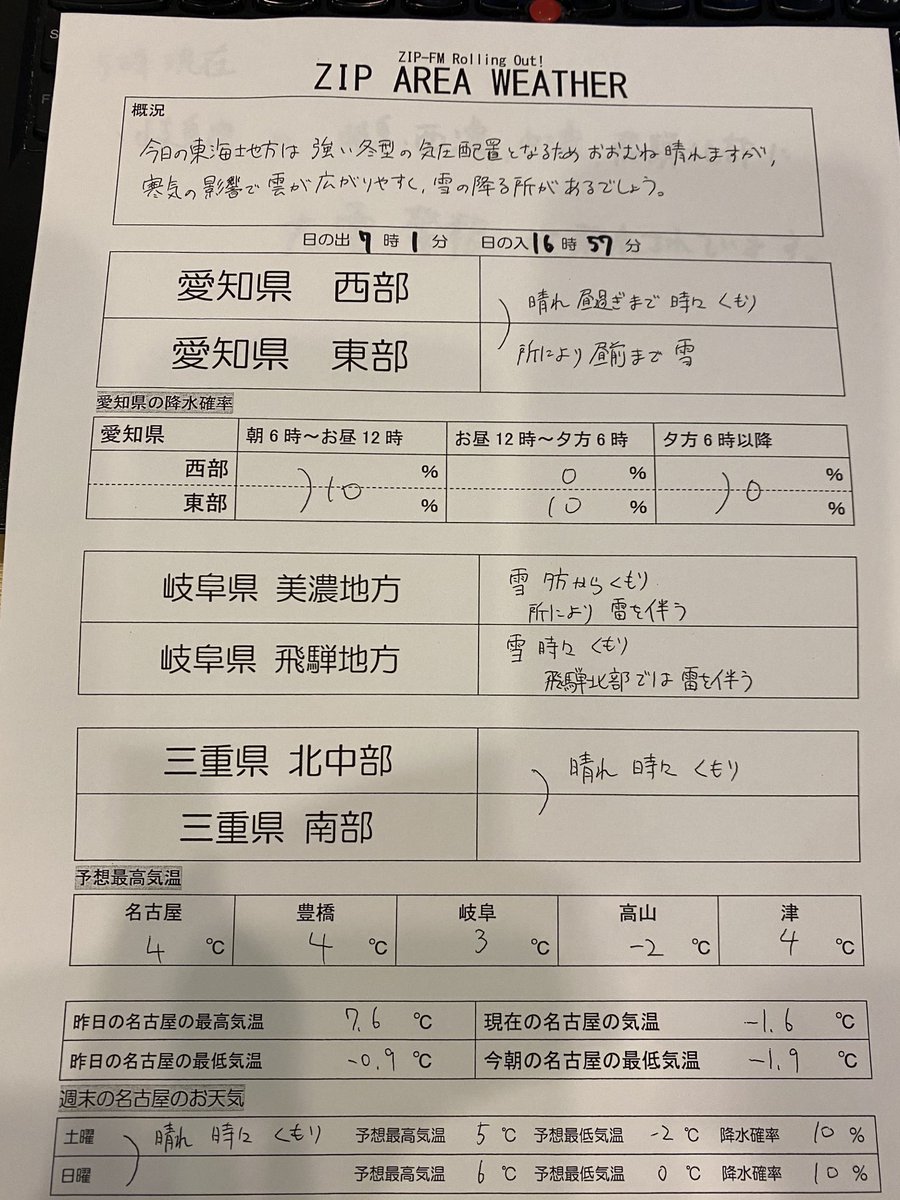 ZIP-FM Rolling Out!
ZIP AREA WEATHER
概況
今日の東海地方は 強い冬型の気圧配置となるため おおむね晴れますが,
寒気の影響で雲が広がりやすく, 雪の降る所があるでしょう。
日の出 7 時 1 分 日の入 16 時 57 分
愛知県 西部
晴れ 昼過ぎまで 時々 くもり
愛知県 東部
所により 昼前まで 雪
愛知県の降水確率
愛知県 朝6時~お昼12時 お昼12時~夕方6時 夕方6時以降
西部 % 0 % %
10 0
東部 % 10 % %
岐阜県 美濃地方
雪 夕方からくもり
所により 雷を伴う
岐阜県 飛騨地方
雪 時々 くもり
飛騨北部では 雷を伴う
三重県 北中部
晴れ 時々 くもり
三重県 南部
予想最高気温
名古屋 豊橋 岐阜 高山 津
4 ℃ 4 ℃ 3 ℃ -2 ℃ 4 ℃
昨日の名古屋の最高気温 7.6 ℃ 現在の名古屋の気温 -1.6 ℃
昨日の名古屋の最低気温 -0.9 ℃ 今朝の名古屋の最低気温 -1.9 ℃
週末の名古屋のお天気
土曜 晴れ 時々 くもり 予想最高気温 5 ℃ 予想最低気温 -2 ℃ 降水確率 10 %
日曜 予想最高気温 6 ℃ 予想最低気温 0 ℃ 降水確率 10 %